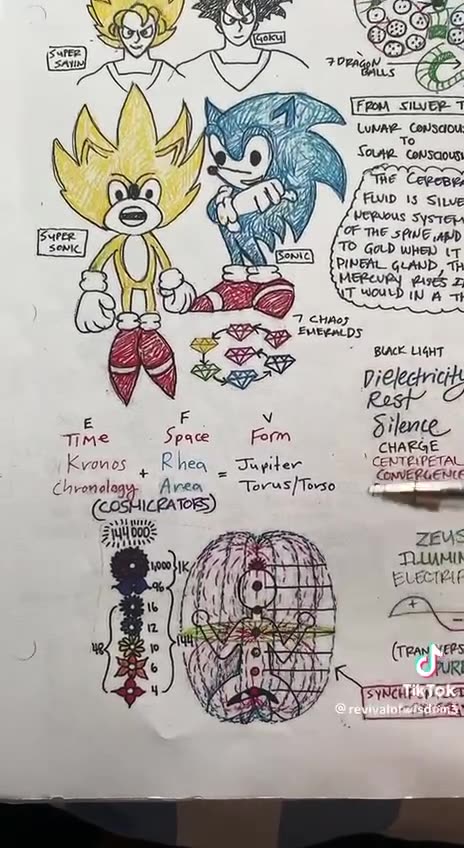 SUPER
SAYIN
GOKU
7 DRAGON
BALLS
FROM SILVER T
LUNAR CONSCIOUS
TO
SOLAR CONSCIOUS
THE CEREBR
FLUID IS SILVE
NERVOUS SYSTEM
OF THE SPINE, AND
TO GOLD WHEN IT
PINEAL GLAND, TH
MERCURY RISES I
IT WOULD IN A TH
SUPER
SONIC
SONIC
7 CHAOS
EMERALDS
BLACK LIGHT
Dielectricity
Rest
Silence
CHARGE
CENTRIPETAL
CONVERGENCE
E F V
Time Space Form
Kronos + Rhea = Jupiter
Chronology Area Torus/Torso
(COSMICRATOPS)
144000
1,000 1K
96
16
12
10
6
4
48
144
ZEUS
ILLUMIN
ELECTRIF
+ -
(TRANSVERS
PURE
SYNCH
TikTok
@revivalofwisdom3